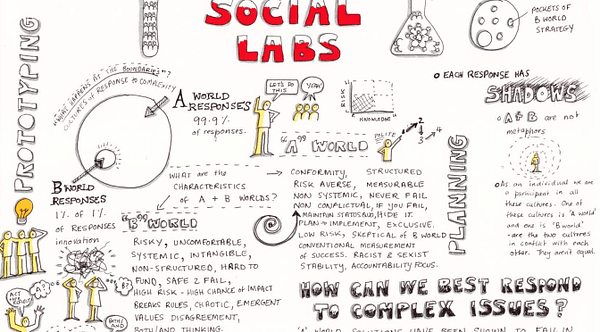 SOCIAL
LABS
PROTOTYPING
POCKETS OF
B WORLD
STRATEGY
"WHAT HAPPENS AT THE BOUNDARIES"?
CULTURES OF RESPONSE TO COMPLEXITY
A WORLD
RESPONSES
99.9%
of responses.
B WORLD
RESPONSES
1% of 1%
of RESPONSES
innovation
LET'S DO
THIS
YEAH!
RISK
KNOWLEDGE
"A" WORLD
1
2
3
4
WHAT are the
CHARACTERISTICS
of A + B WORLDS?
CONFORMITY, STRUCTURED
RISK AVERSE, MEASURABLE
NON SYSTEMIC, NEVER FAIL
NON CONFLICTUAL, IF YOU FAIL,
MAINTAIN STATUS QUO, HIDE IT.
PLAN → IMPLEMENT, EXCLUSIVE.
LOW RISK, SKEPTICAL of B WORLD
CONVENTIONAL MEASUREMENT
OF SUCCESS. RACIST & SEXIST
STABILITY, ACCOUNTABILITY FOCUS.
"B" WORLD
RISKY, UNCOMFORTABLE,
SYSTEMIC, INTANGIBLE,
NON-STRUCTURED, HARD TO
FUND, SAFE 2 FAIL,
HIGH RISK - HIGH CHANCE of IMPACT
BREAKS RULES, CHAOTIC, EMERGENT
VALUES DISAGREEMENT,
BOTH/AND THINKING.
PLANNING
EACH RESPONSE HAS
SHADOWS
A + B are not
metaphors
As an individual we are
a participant in all
these cultures. One of
these cultures is 'A world'
and one is 'B world'
are the two cultures
in conflict with each
other. They aren't equal.
HOW CAN WE BEST RESPOND
TO COMPLEX ISSUES?
'A' WORLD SOLUTIONS HAVE BEEN SHOWN TO FAIL IN